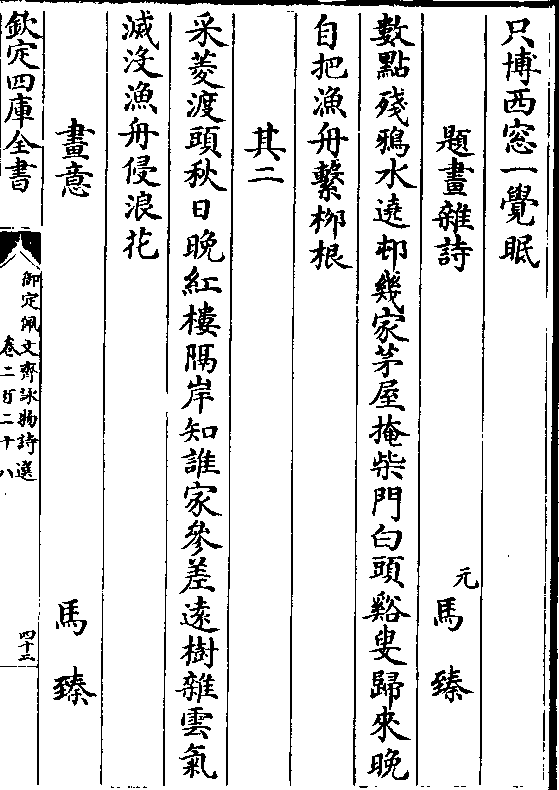 只博西窓一覺眠
題畫雜詩　元　馬臻
數點殘鴉水遶邨幾家茅屋掩柴門白頭谿叟歸來晚
自把漁舟繫栁根
其二
采菱渡頭秋日晚紅樓隔岸知誰家參差遠樹雜雲氣
滅沒漁舟侵浪花
畫意　馬臻
欽定四庫全書
御定佩文齊詠物詩選
卷二百二十八
四十三